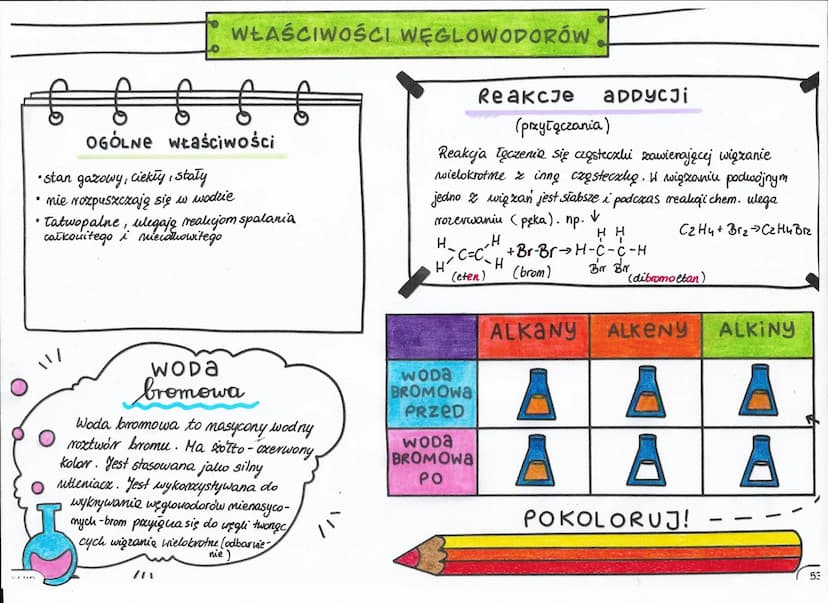 WŁAŚCIWOŚCI WĘGLOWODORÓW
OGÓLNE WŁAŚCIWOŚCI
• stan gazowy, ciekły i stały
• nie rozpuszczają się w wodzie
• łatwopalne, ulegają reakcjom spalania
całkowitego i niecałkowitego
REAKCJE ADDYCJI
(przyłączania)
Reakcja łączenia się cząsteczki zawierającej wiązanie
wielokrotne z inną cząsteczką. W wiązaniu podwójnym
jedno z wiązań jest słabsze i podczas reakcji chem. ulega
rozerwaniu (pęka). np. ↓
C2H4 + Br2 → C2H4Br2
H H H H
C=C + Br-Br → H-C-C-H
H H Br Br
(eten) (brom) (dibromoetan)
ALKANY ALKENY ALKINY
WODA
BROMOWA
PRZED
WODA
BROMOWA
PO
WODA
bromowa
Woda bromowa to nasycony wodny
roztwór bromu. Ma żółto-czerwony
kolor. Jest stosowana jako silny
utleniacz. Jest wykorzystywana do
wykrywania węglowodorów nienasyco-
nych - brom przyłącza się do węgli tworzą
cych wiązania wielokrotne (odbarwie-
nie)
POKOLORUJ!
53